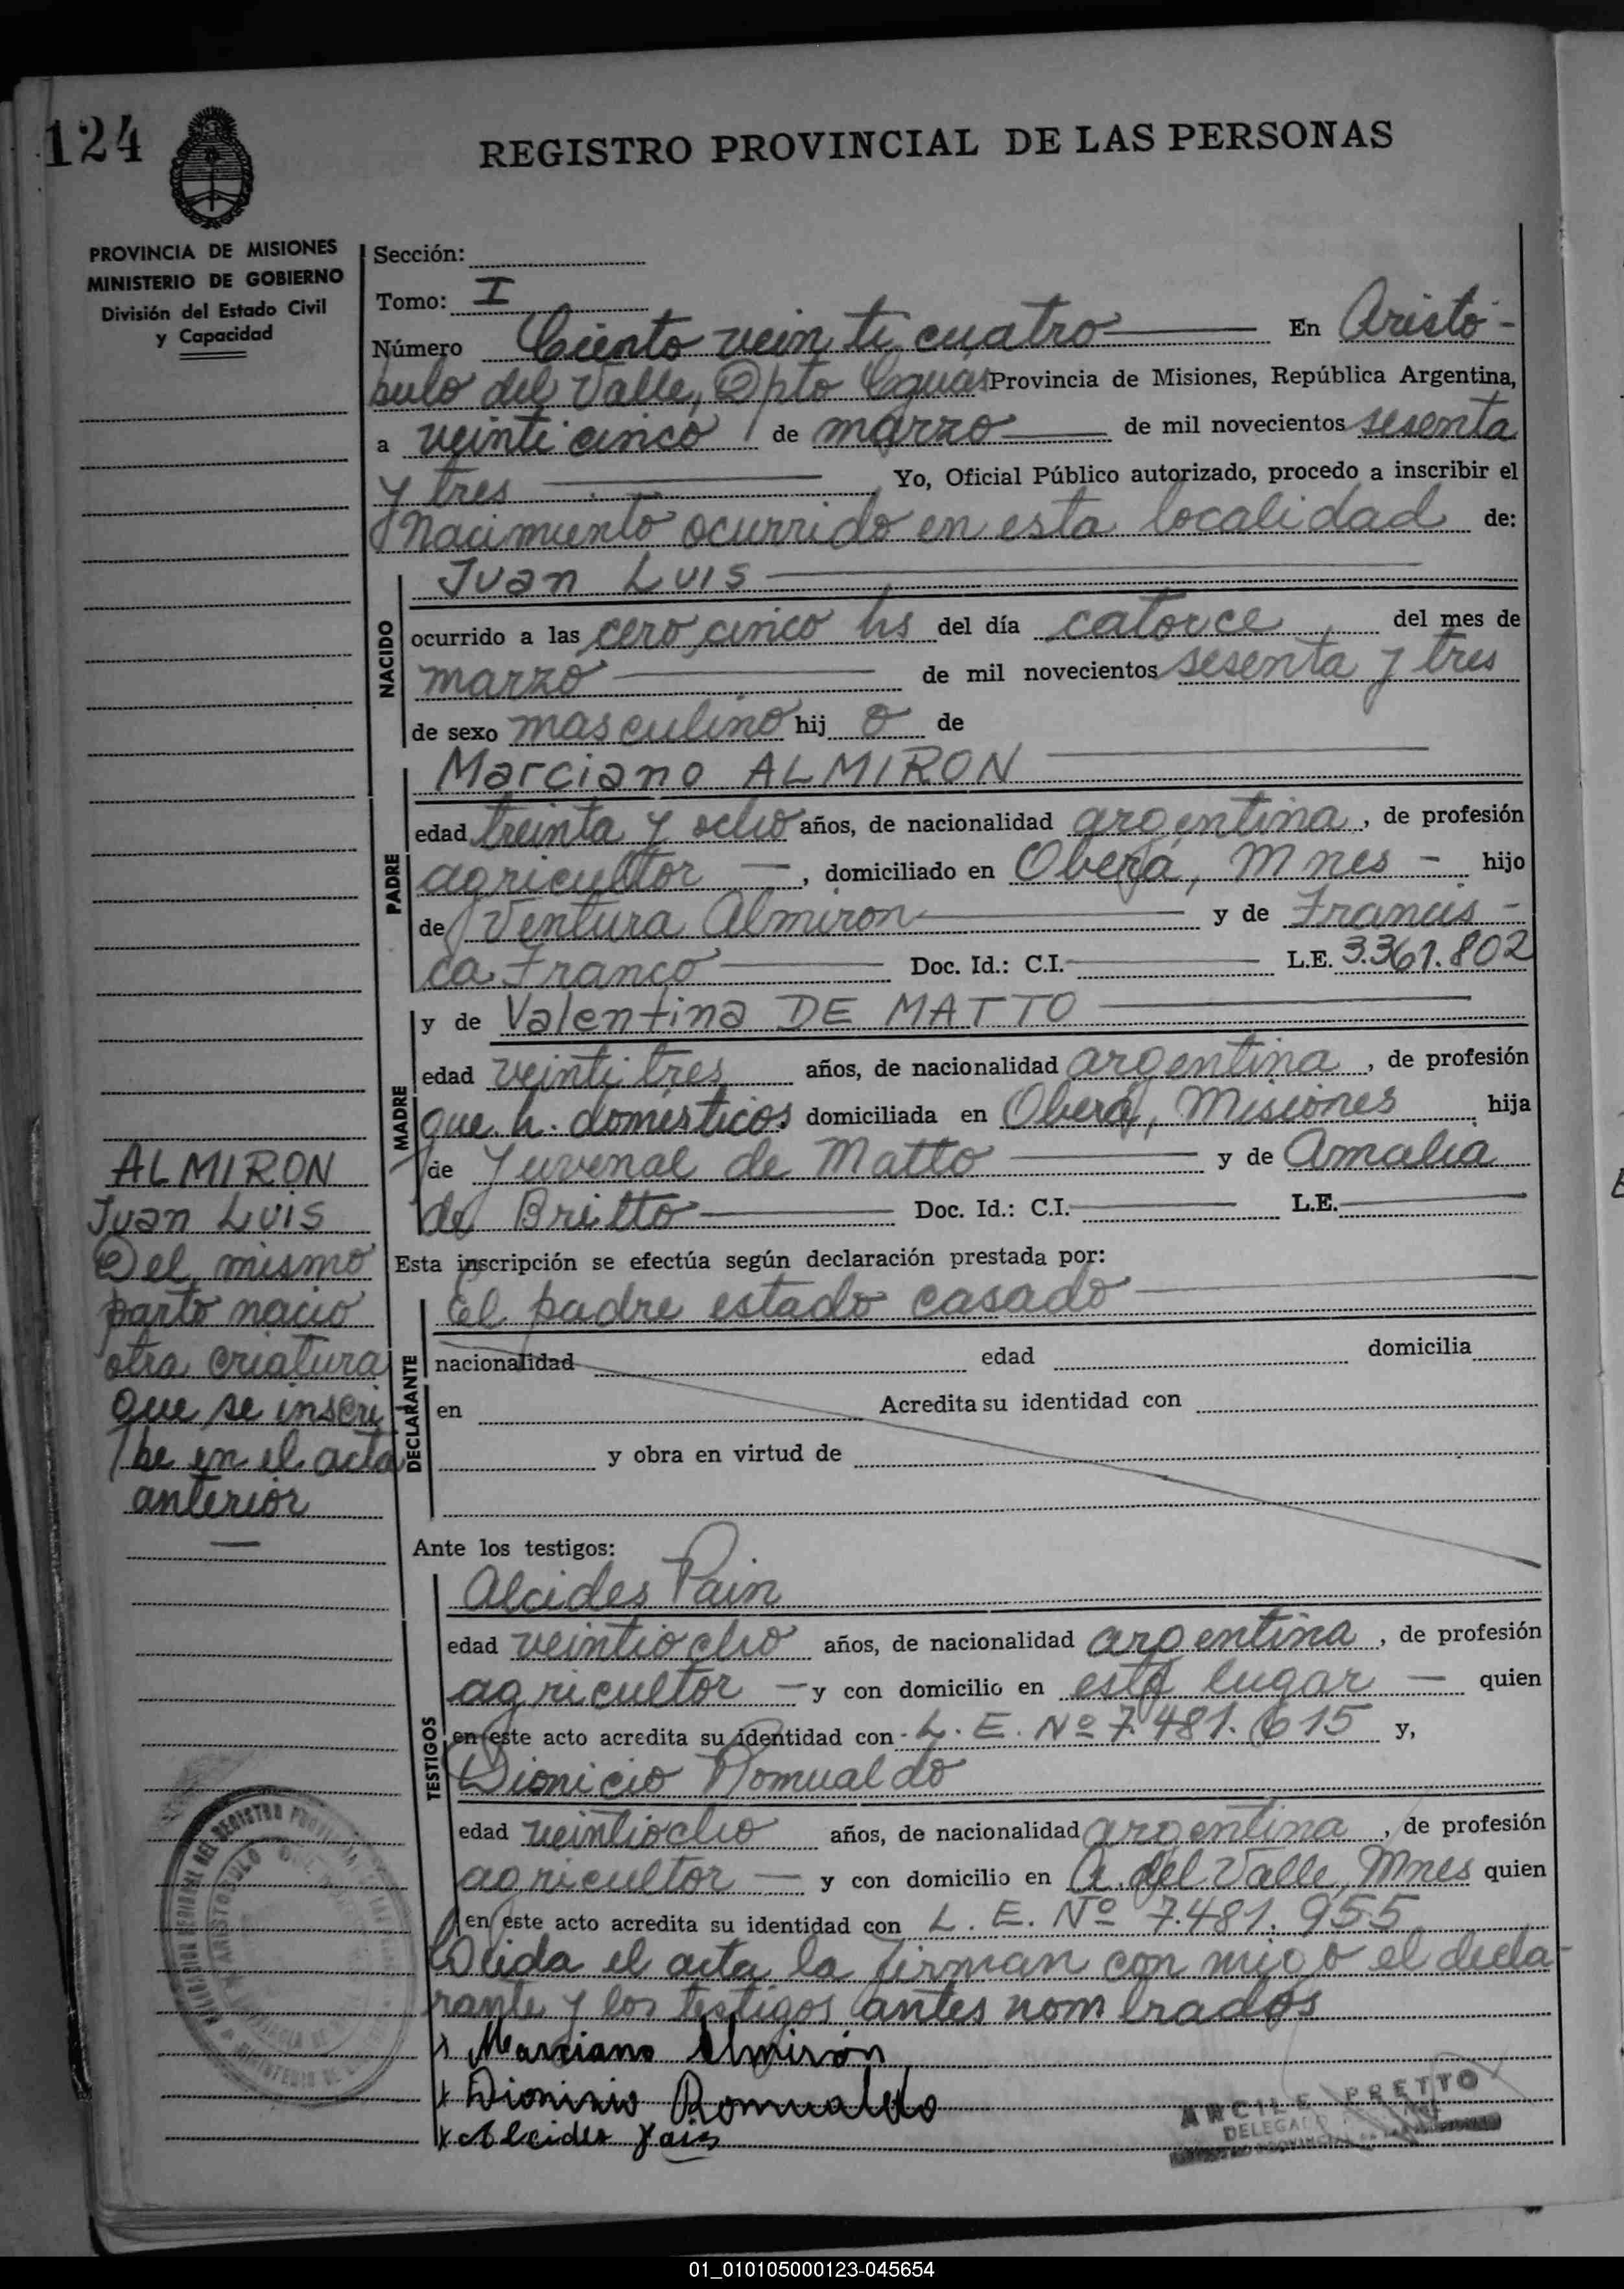 124
REGISTRO PROVINCIAL DE LAS PERSONAS
PROVINCIA DE MISIONES
MINISTERIO DE GOBIERNO
División del Estado Civil
y Capacidad
Sección:
Tomo: I
Número Ciento veinticuatro En Aristó-
bulo del Valle, Dpto Cguas Provincia de Misiones, República Argentina,
a veinticinco de marzo de mil novecientos sesenta
y tres Yo, Oficial Público autorizado, procedo a inscribir el
Nacimiento ocurrido en esta localidad de:
NACIDO
Juan Luis
ocurrido a las cero cinco hs del día catorce del mes de
marzo de mil novecientos sesenta y tres
de sexo masculino hij o de
PADRE
Marciano ALMIRON
edad treinta y ocho años, de nacionalidad argentina, de profesión
agricultor —, domiciliado en Oberá, Mnes - hijo
de Ventura Almiron y de Francis-
ca Franco Doc. Id.: C.I. L.E. 3.361.802
MADRE
y de Valentina DE MATTO
edad veintitres años, de nacionalidad argentina, de profesión
que. h. domésticos domiciliada en Oberá, Misiones hija
de Juvenal de Matto y de Amalia
de Britto Doc. Id.: C.I. L.E.
ALMIRON
Juan Luis
Del mismo
parto nacio
otra criatura
que se inscri
be en el acta
anterior
Esta inscripción se efectúa según declaración prestada por:
DECLARANTE
El padre estado casado
nacionalidad edad domicilia
en Acredita su identidad con
y obra en virtud de
Ante los testigos:
TESTIGOS
Alcides Pain
edad veintiocho años, de nacionalidad argentina, de profesión
agricultor — y con domicilio en este lugar — quien
en este acto acredita su identidad con L. E. Nº 7.481.615 y,
Dionicio Romualdo
edad veintiocho años, de nacionalidad argentina, de profesión
agricultor — y con domicilio en A. del Valle, Mnes quien
en este acto acredita su identidad con L. E. Nº 7.481.955
Leida el acta la firman con migo el decla-
rante y los testigos antes nombrados
Marciano Almirón
Dionisio Romualdo
Alcides Pain
ARCILE PRETTO
DELEGADO
01_010105000123-045654